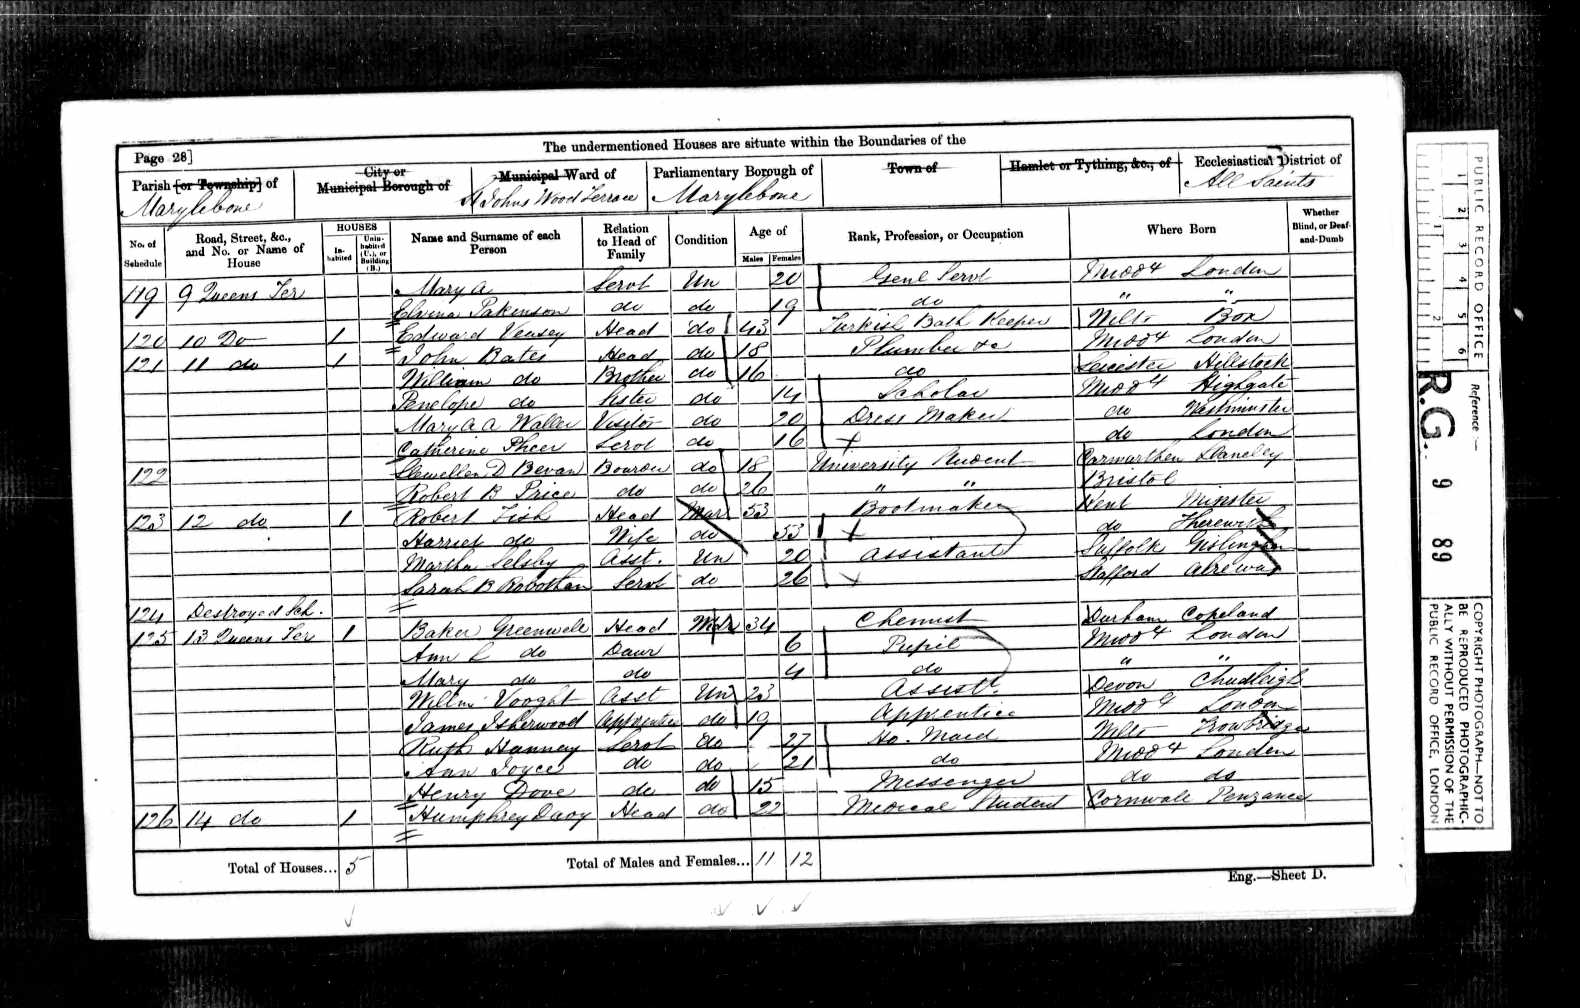 The undermentioned Houses are situate within the Boundaries of the
Page 28]
Parish [or Township] of
Marylebone
City or
Municipal Borough of
Municipal Ward of
St Johns Wood Terrace
Parliamentary Borough of
Marylebone
Town of
Hamlet or Tything, &c., of
Ecclesiastical District of
All Saints
No. of Schedule
Road, Street, &c., and No. or Name of House
HOUSES
In-habited
Unin-habited (U.), or Building (B.)
Name and Surname of each Person
Relation to Head of Family
Condition
Age of
Males
Females
Rank, Profession, or Occupation
Where Born
Whether Blind, or Deaf-and-Dumb
119 9 Queens Ter Mary A Servt Un 20 Genl Servt Middx London
Elvina Pakenson do do 19 do " "
120 10 Do 1 Edward Veusey Head do 43 Turkish Bath Keeper Wilts Box
121 11 do 1 John Bates Head do 18 Plumber &c Middx London
William do Brother do 16 do Leicester
Penelope do Sister do 14 Scholar Middx Highgate
Mary A A Waller Visitor do 20 Dress Maker do Westminster
Catherine Servt do 16 do London
122 Llewellen D Bevan Boarder do 18 University Student Carmarthen Llanelly
Robert B Price do do 26 " " Bristol
123 12 do 1 Robert Fish Head Mar 53 Bootmaker Kent Minster
Harriet do Wife do 53 do
Martha Selsby Asst. Un 20 Assistant Suffolk
Sarah B Rabothan Servt do 26 Stafford Alrewas
124 Destroyed Sch.
125 13 Queens Ter 1 Baker Greenwell Head 34 Chemist Durham Copeland
Ann do Daur 6 Pupil Middx London
Mary do do 4 do " "
Willm Vooght Asst Un 23 Assist. Devon Chudleigh
James Isherwood Apprentice do 19 Apprentice Middx London
Ruth Hanney Servt do 27 Ho. Maid Wilts Trowbridge
Ann Joyce do do 21 do Middx London
Henry Dove do do 15 Messenger do do
126 14 do 1 Humphrey Davy Head do 22 Medical Student Cornwall Penzance
Total of Houses... 5
Total of Males and Females... 11 12
Eng.—Sheet D.
PUBLIC RECORD OFFICE
1 2 3 4 5 6
1 2
Reference :—
R.G. 9 89
COPYRIGHT PHOTOGRAPH—NOT TO BE REPRODUCED PHOTOGRAPHIC-ALLY WITHOUT PERMISSION OF THE PUBLIC RECORD OFFICE, LONDON